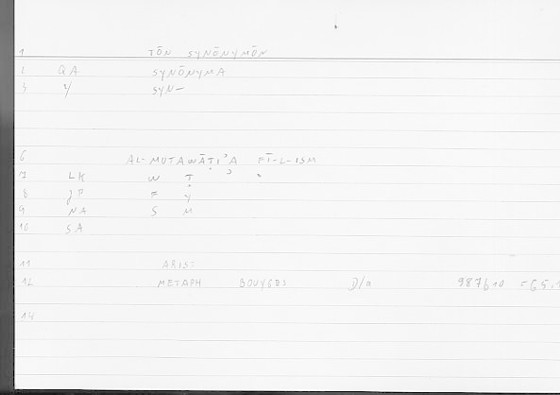 1 TŌN SYNŌNYMŌN
2 GA SYNŌNYMA
3 y SYN-
6 AL-MUTAWĀṬIʾA FĪ-L-ISM
7 LK W Ṭ ʾ
8 F Y
9 NA S M
10 SA
11 ARIST
12 METAPH BOUYGES D/a 987b10
14